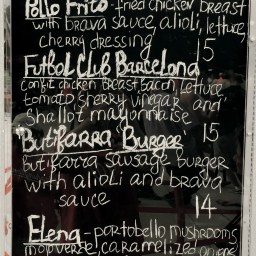 Pollo Frito - fried chicken breast
with brava sauce, alioli, lettuce,
cherry dressing 15
Futbol Club Barcelona
confit chicken breast, bacon, lettuce
tomato sherry vinegar and
shallot mayonnaise
"Butifarra Burger" 15
butifarra sausage burger
with alioli and brava
sauce 14
Elena - portobello mushrooms,
mojo verde, caramelized onions